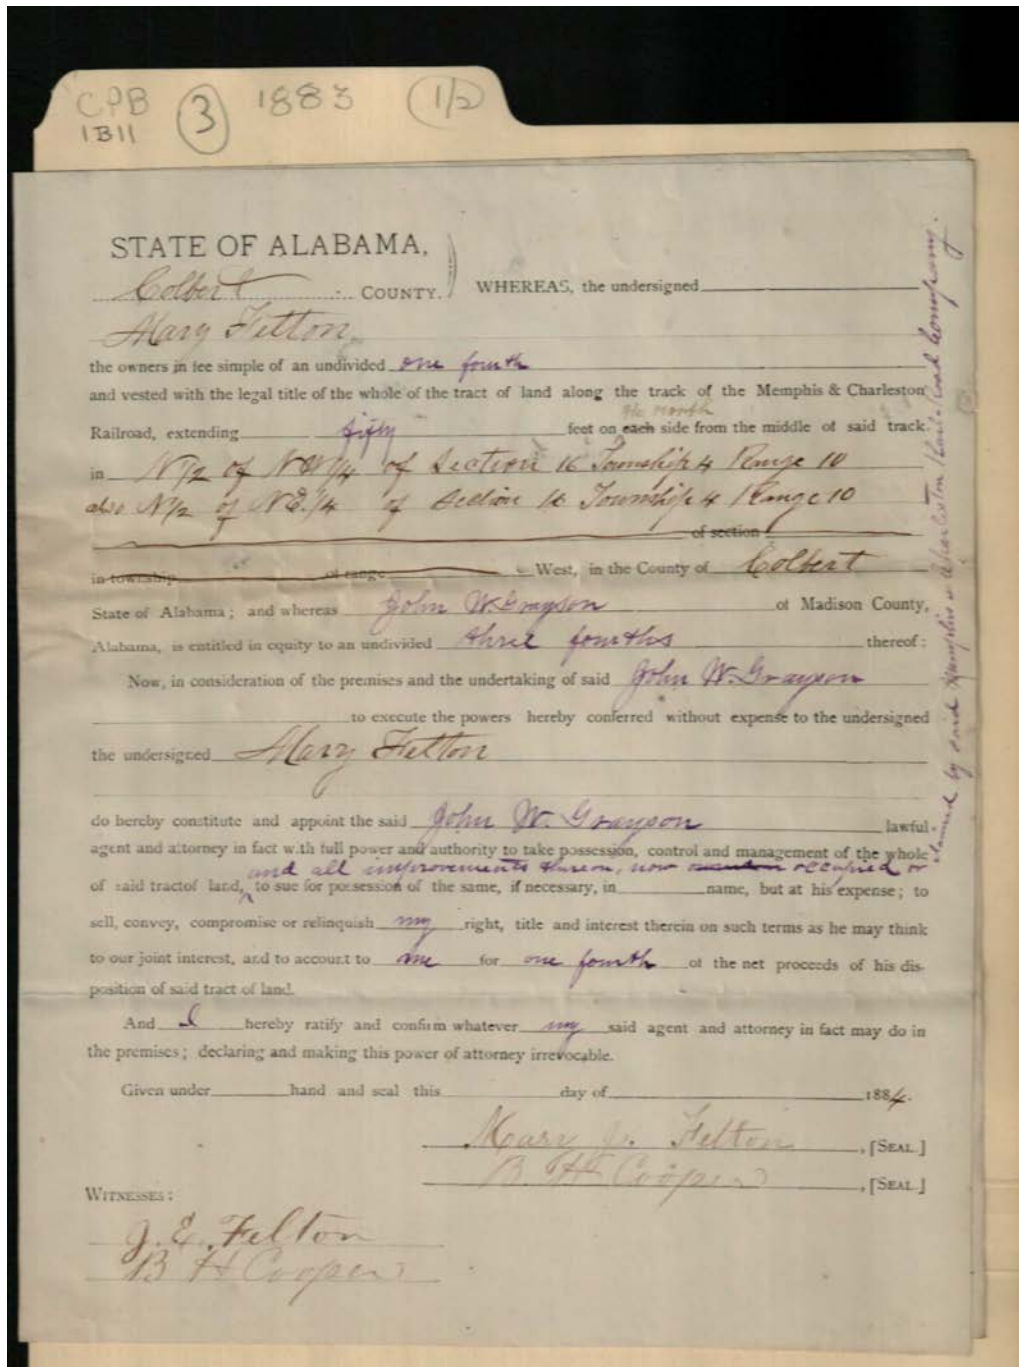 CPB
1B11
3
1883
(1/2)
STATE OF ALABAMA,
Colbert COUNTY. WHEREAS, the undersigned
Mary Felton
the owners in fee simple of an undivided one fourth
and vested with the legal title of the whole of the tract of land along the track of the Memphis & Charleston
the north
Railroad, extending fifty feet on each side from the middle of said track
in N 1/2 of NW 1/4 of Section 16 Township 4 Range 10
also N 1/2 of N.E. 1/4 of Section 16 Township 4 Range 10
of section
in township of range West, in the County of Colbert
State of Alabama; and whereas John W. Grayson of Madison County,
Alabama, is entitled in equity to an undivided three fourths thereof:
Now, in consideration of the premises and the undertaking of said John W. Grayson
to execute the powers hereby conferred without expense to the undersigned
the undersigned Mary Felton
do hereby constitute and appoint the said John W. Grayson lawful
agent and attorney in fact with full power and authority to take possession, control and management of the whole
and all improvements thereon, now occupied or
of said tract of land, to sue for possession of the same, if necessary, in name, but at his expense; to
sell, convey, compromise or relinquish my right, title and interest therein on such terms as he may think
to our joint interest, and to account to me for one fourth of the net proceeds of his dis-
position of said tract of land.
And I hereby ratify and confirm whatever my said agent and attorney in fact may do in
the premises; declaring and making this power of attorney irrevocable.
Given under hand and seal this day of 1884.
Mary J. Felton, [SEAL.]
B. H. Cooper, [SEAL.]
WITNESSES:
J. E. Felton
B H Cooper
claimed by said Memphis & Charleston Rail-Road Company.